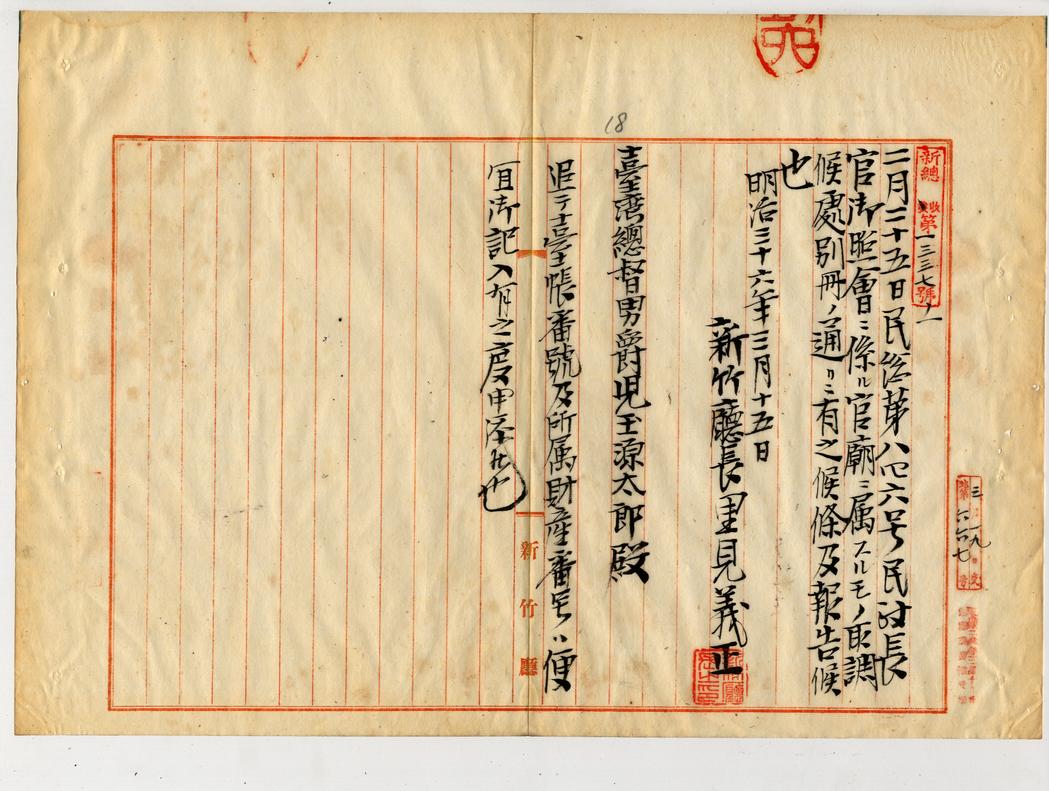 新總
第一三三七號ノ一
二月二十五日民総第八四六号民財長
官御照會ニ係ル官廟ニ属スルモノ取調
候處別冊ノ通リニ有之候條及報告候
也
明治三十六年三月十五日
新竹廳長里見義正
18
臺湾總督男爵児玉源太郎殿
追テ臺帳番號及所属財産番号ハ便
宜御記入有之度申添候也
新竹廳